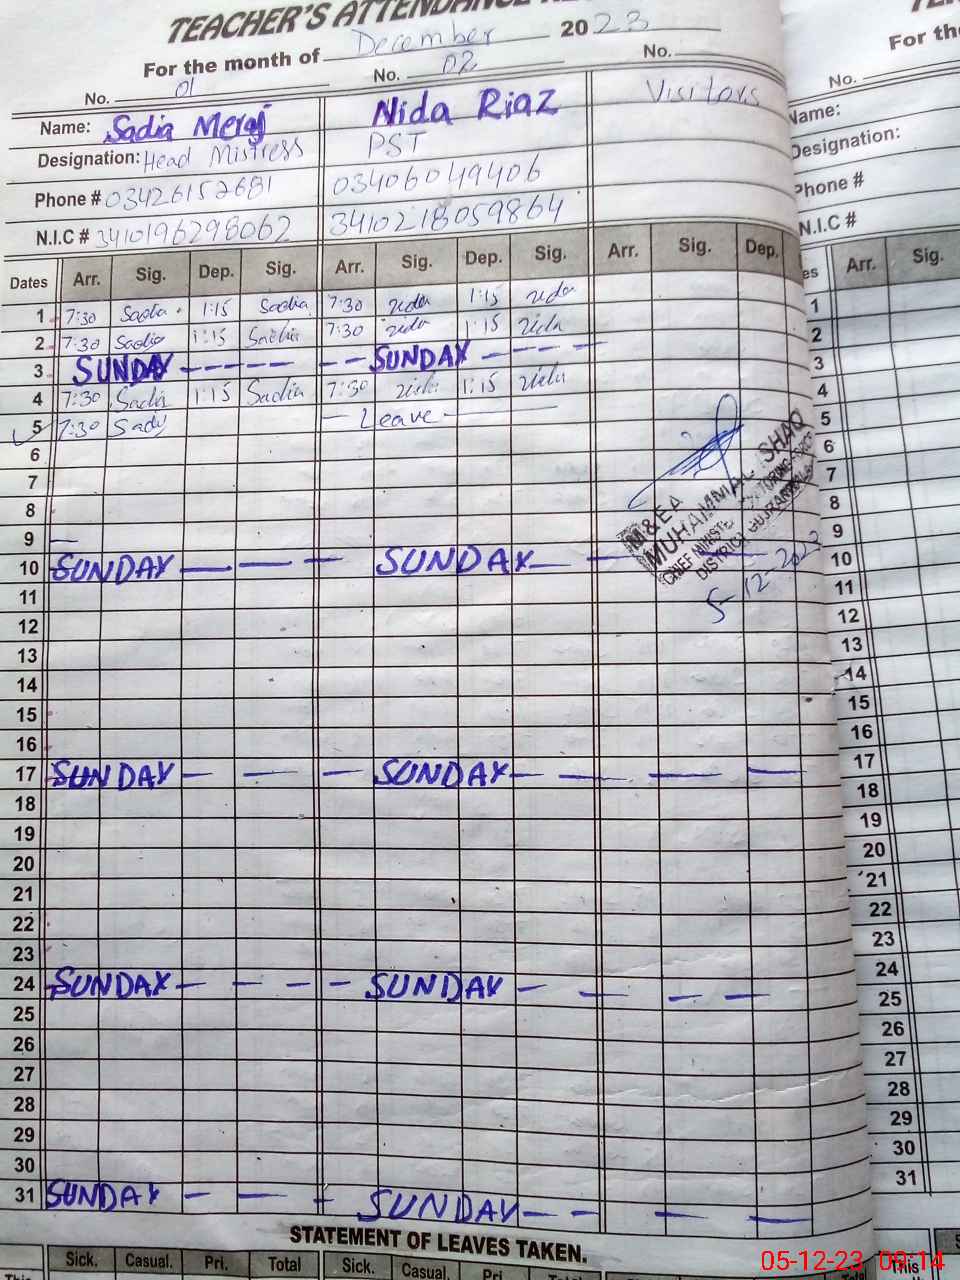 TEACHER'S ATTENDANCE
For the month of December 2023
No. 01 No. 02 No.
Name: Sadia Meraj Nida Riaz Visitors
Designation: Head Mistress PST
Phone # 03426152681 03406049406
N.I.C # 3410196298062 3410218059864
Dates Arr. Sig. Dep. Sig. Arr. Sig. Dep. Sig. Arr. Sig. Dep.
1 7:30 Sadia 1:15 Sadia 7:30 nida 1:15 nida
2 7:30 Sadia 1:15 Sadia 7:30 nida 1:15 nida
3 SUNDAY ----- -- SUNDAY ----
4 7:30 Sadia 1:15 Sadia 7:30 nida 1:15 nida
5 7:30 Sadia — Leave —
6
7
8
9 —
10 SUNDAY — — — SUNDAY — —
11
12
13
14
15
16
17 SUNDAY — — — SUNDAY — — — —
18
19
20
21
22
23
24 SUNDAY — — — — SUNDAY — — — —
25
26
27
28
29
30
31 SUNDAY — — — SUNDAY — — — —
M&EA
MUHAMMAD ISHAQ
CHIEF MINISTER
DISTRICT GUJRANWALA
5-12-2023
STATEMENT OF LEAVES TAKEN.
Sick. Casual. Pri. Total Sick. Casual. Pri. Total
This This
For the
No.
Name:
Designation:
Phone #
N.I.C #
es Arr. Sig.
1
2
3
4
5
6
7
8
9
10
11
12
13
14
15
16
17
18
19
20
21
22
23
24
25
26
27
28
29
30
31
05-12-23 09:14